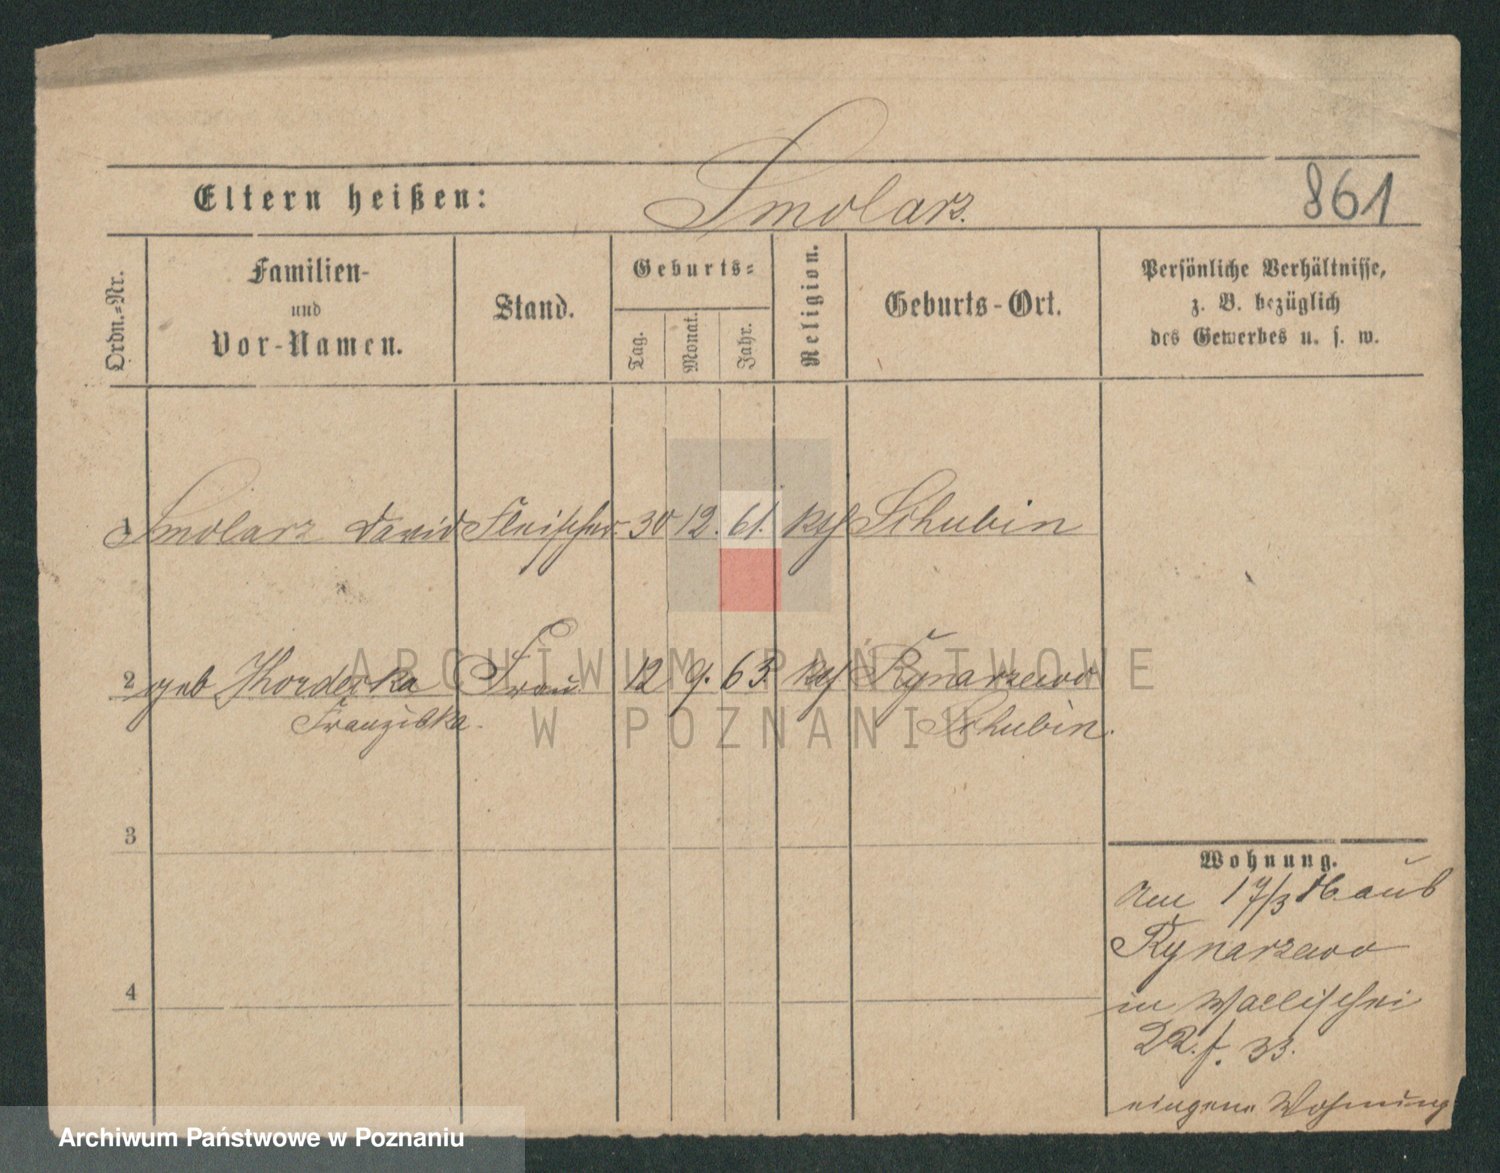 Eltern heißen: Smolarz. 861
Ordn.=Nr.
Familien-
und
Vor-Namen.
Stand.
Geburts=
Tag.
Monat.
Jahr.
Religion.
Geburts-Ort.
Persönliche Verhältnisse,
z. B. bezüglich
des Gewerbes u. s. w.
1 Smolarz David Fleischer 30 12. 61. kth Schubin
2 geb Frau 12 9. 63. kth Rynarzewo
Franziska. Schubin.
3
4
Wohnung.
Am 17/3 aus
Rynarzewo
in Wallischei
22. f. 33.
eigene Wohnung
ARCHIWUM PAŃSTWOWE
W POZNANIU
Archiwum Państwowe w Poznaniu